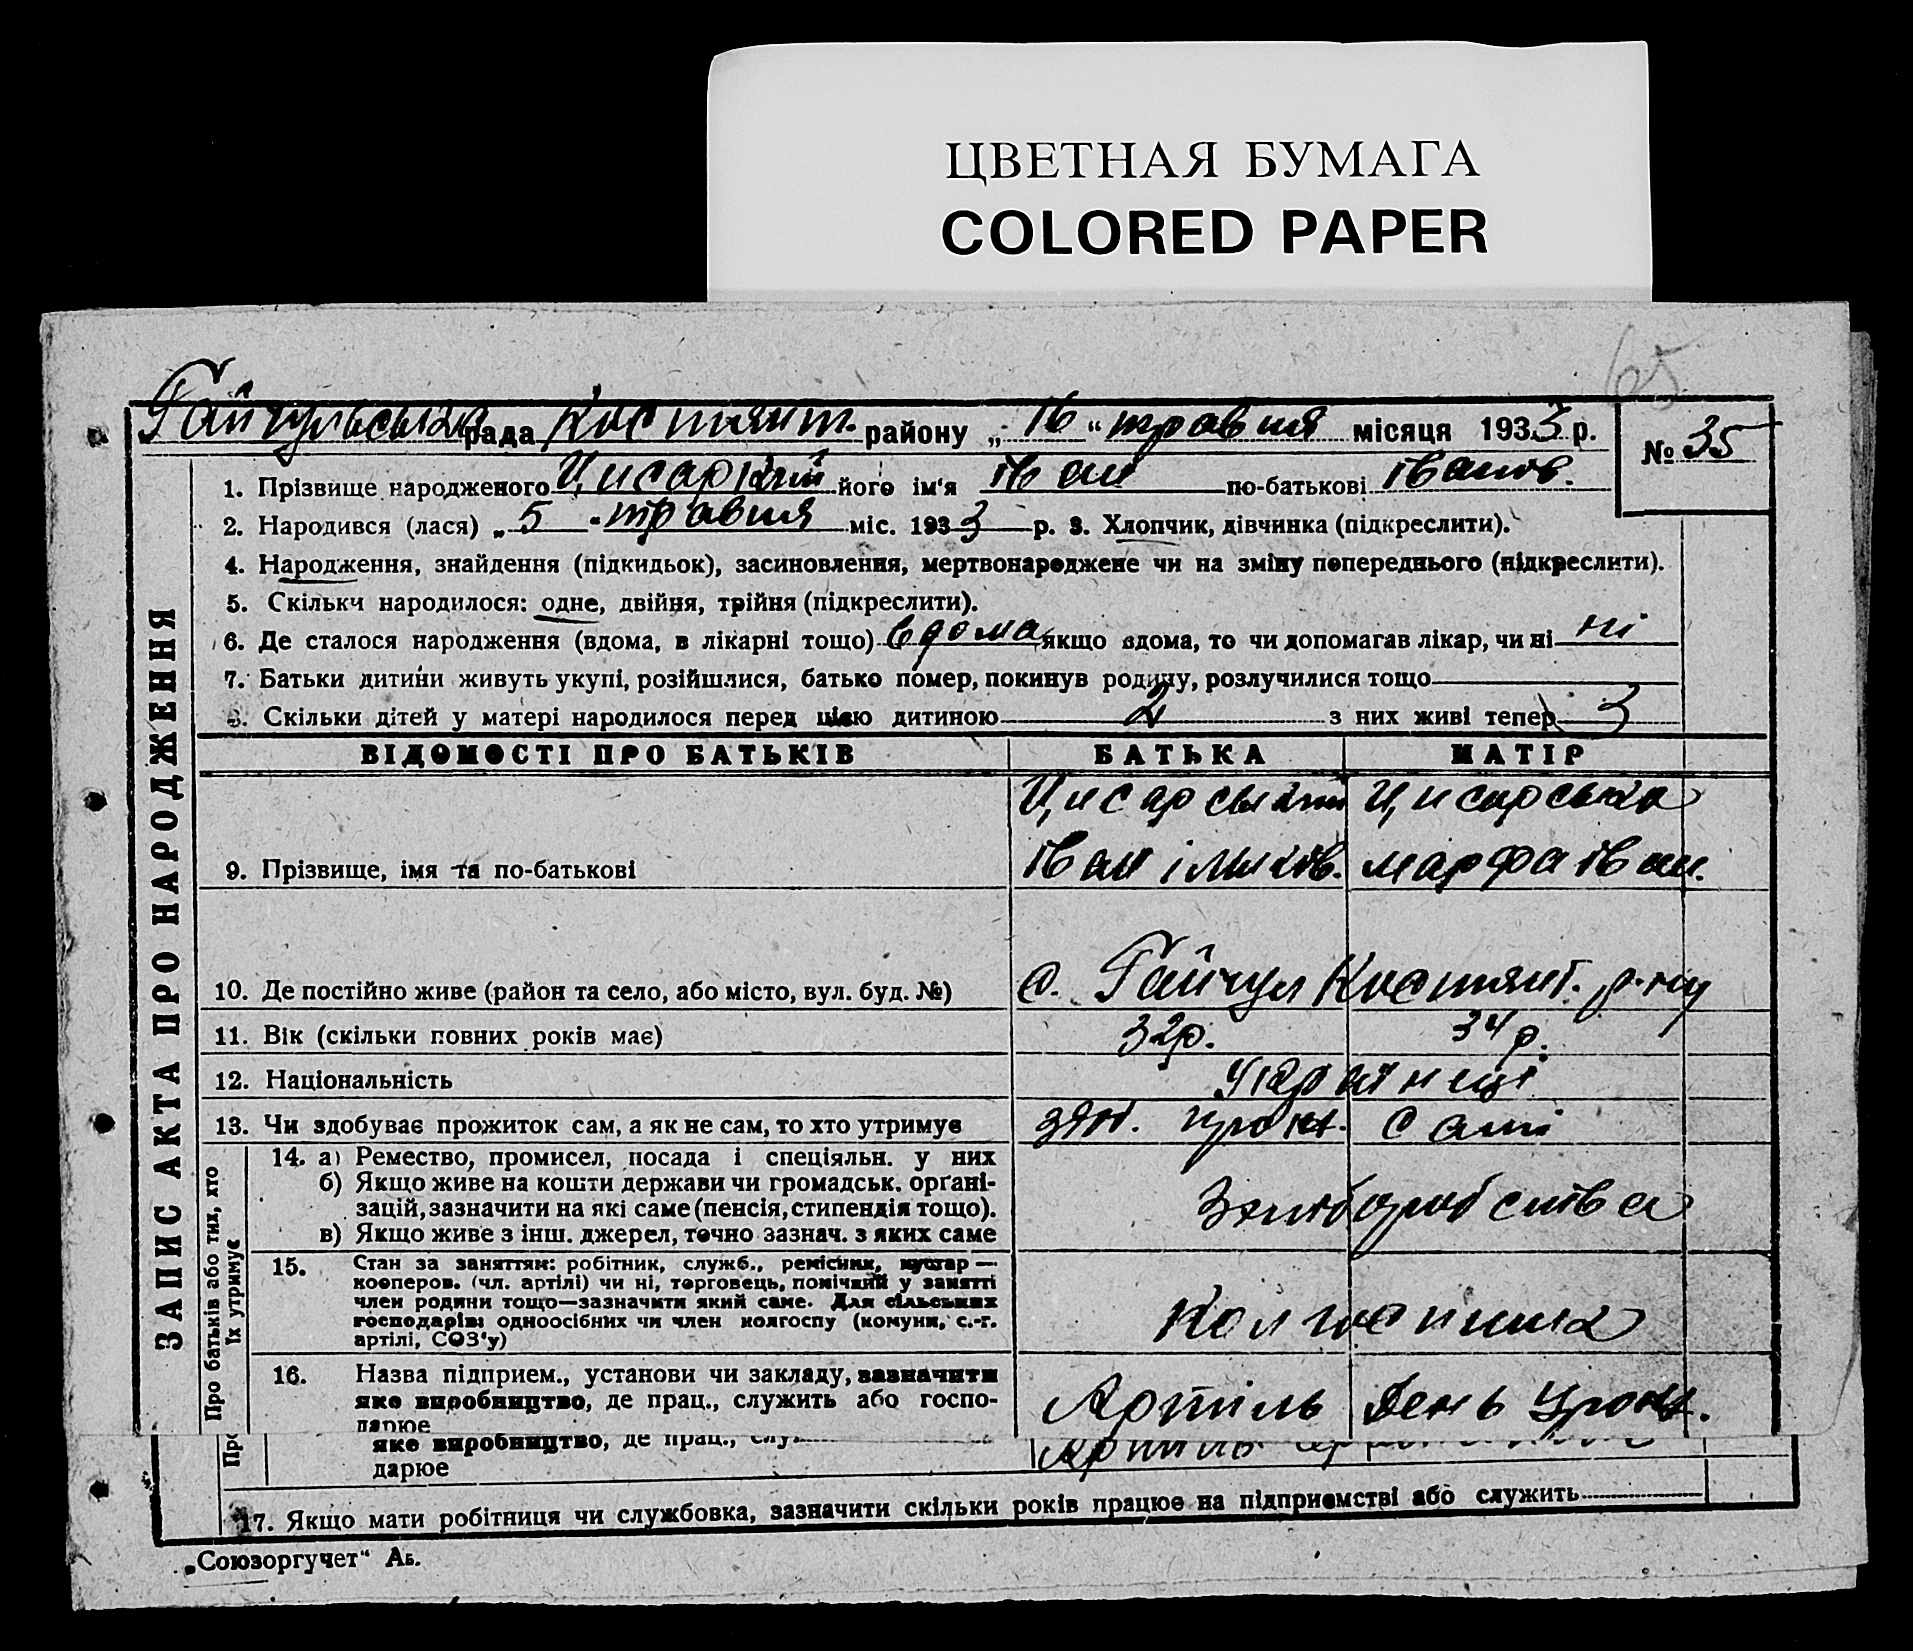 ЦВЕТНАЯ БУМАГА
COLORED PAPER
65
Гайчульська рада Костянт. району „16“ травня місяця 1933 р.
№ 35
1. Прізвище народженого Цисарський його ім'я Іван по-батькові Іванов.
2. Народився (лася) „5“ травня міс. 1933 р. 3. Хлопчик, дівчинка (підкреслити).
4. Народження, знайдення (підкидьок), засиновлення, мертвонароджене чи на зміну попереднього (підкреслити).
5. Скільки народилося: одне, двійня, трійня (підкреслити).
6. Де сталося народження (вдома, в лікарні тощо) вдома якщо вдома, то чи допомагав лікар, чи ні ні
7. Батьки дитини живуть укупі, розійшлися, батько помер, покинув родину, розлучилися тощо
8. Скільки дітей у матері народилося перед цією дитиною 2 з них живі тепер 3
ВІДОМОСТІ ПРО БАТЬКІВ БАТЬКА МАТІР
Цисарський Цисарська
9. Прізвище, імя та по-батькові Іван Ільков. Марфа Іван.
10. Де постійно живе (район та село, або місто, вул. буд. №) с. Гайчул Костянт. р-ну
11. Вік (скільки повних років має) 32р. 34р.
12. Національність Українці
13. Чи здобуває прожиток сам, а як не сам, то хто утримує прож. сами
14. а) Ремество, промисел, посада і спеціяльн. у них
б) Якщо живе на кошти держави чи громадськ. органі-
зацій, зазначити на які саме (пенсія, стипендія тощо).
в) Якщо живе з інш. джерел, точно зазнач. з яких саме
15. Стан за заняттям: робітник, служб., ремісник, кустар —
кооперов. (чл. артілі) чи ні, торговець, помічний у занятті
член родини тощо—зазначити який саме. Для сільських
господарів: одноосібних чи член колгоспу (комуни, с.-г.
артілі, СОЗ'у)
16. Назва підприєм., установи чи закладу, зазначити
яке виробництво, де прац., служить або госпо- Артіль День Урож.
дарює
яке виробництво, де прац.,
дарюе
17. Якщо мати робітниця чи службовка, зазначити скільки років працює на підприємстві або служить
„Союзоргучет“ Аб.
ЗАПИС АКТА ПРО НАРОДЖЕННЯ
Про батьків або тих, хто
їх утримує